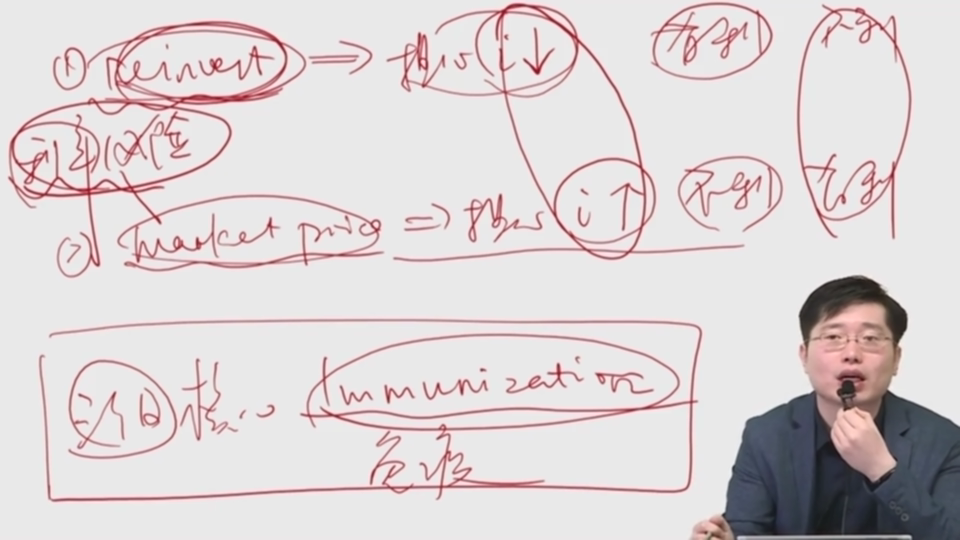 ① reinvest ⇒ 担心 i↓ 有利 不利
利率风险
② market price ⇒ 担心 i↑ 不利 有利
核心 Immunization
免疫